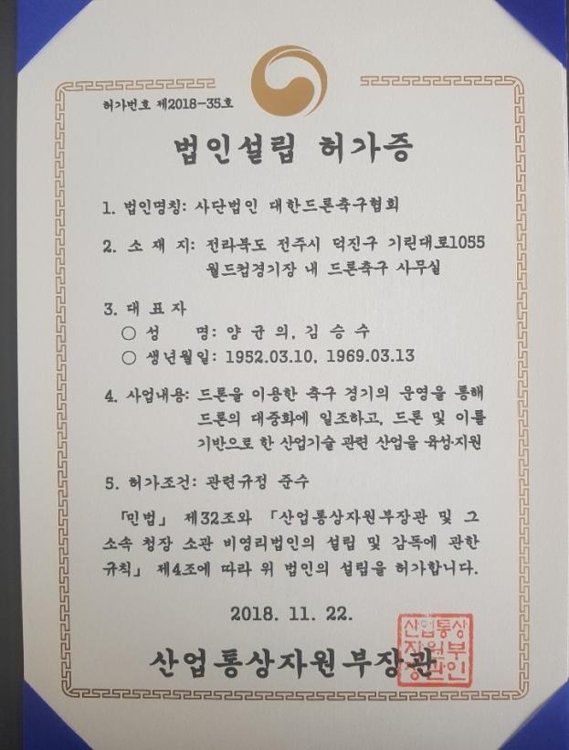 허가번호 제2018-35호
법인설립 허가증
1. 법인명칭: 사단법인 대한드론축구협회
2. 소 재 지: 전라북도 전주시 덕진구 기린대로1055
월드컵경기장 내 드론축구 사무실
3. 대 표 자
○ 성 명: 양 균 의, 김 승 수
○ 생년월일: 1952.03.10, 1969.03.13
4. 사업내용: 드론을 이용한 축구 경기의 운영을 통해
드론의 대중화에 일조하고, 드론 및 이를
기반으로 한 산업기술 관련 산업을 육성·지원
5. 허가조건: 관련규정 준수
「민법」 제32조와 「산업통상자원부장관 및 그
소속 청장 소관 비영리법인의 설립 및 감독에 관한
규칙」 제4조에 따라 위 법인의 설립을 허가합니다.
2018. 11. 22.
산업통상자원부장관
산업통상
자원부
장관인